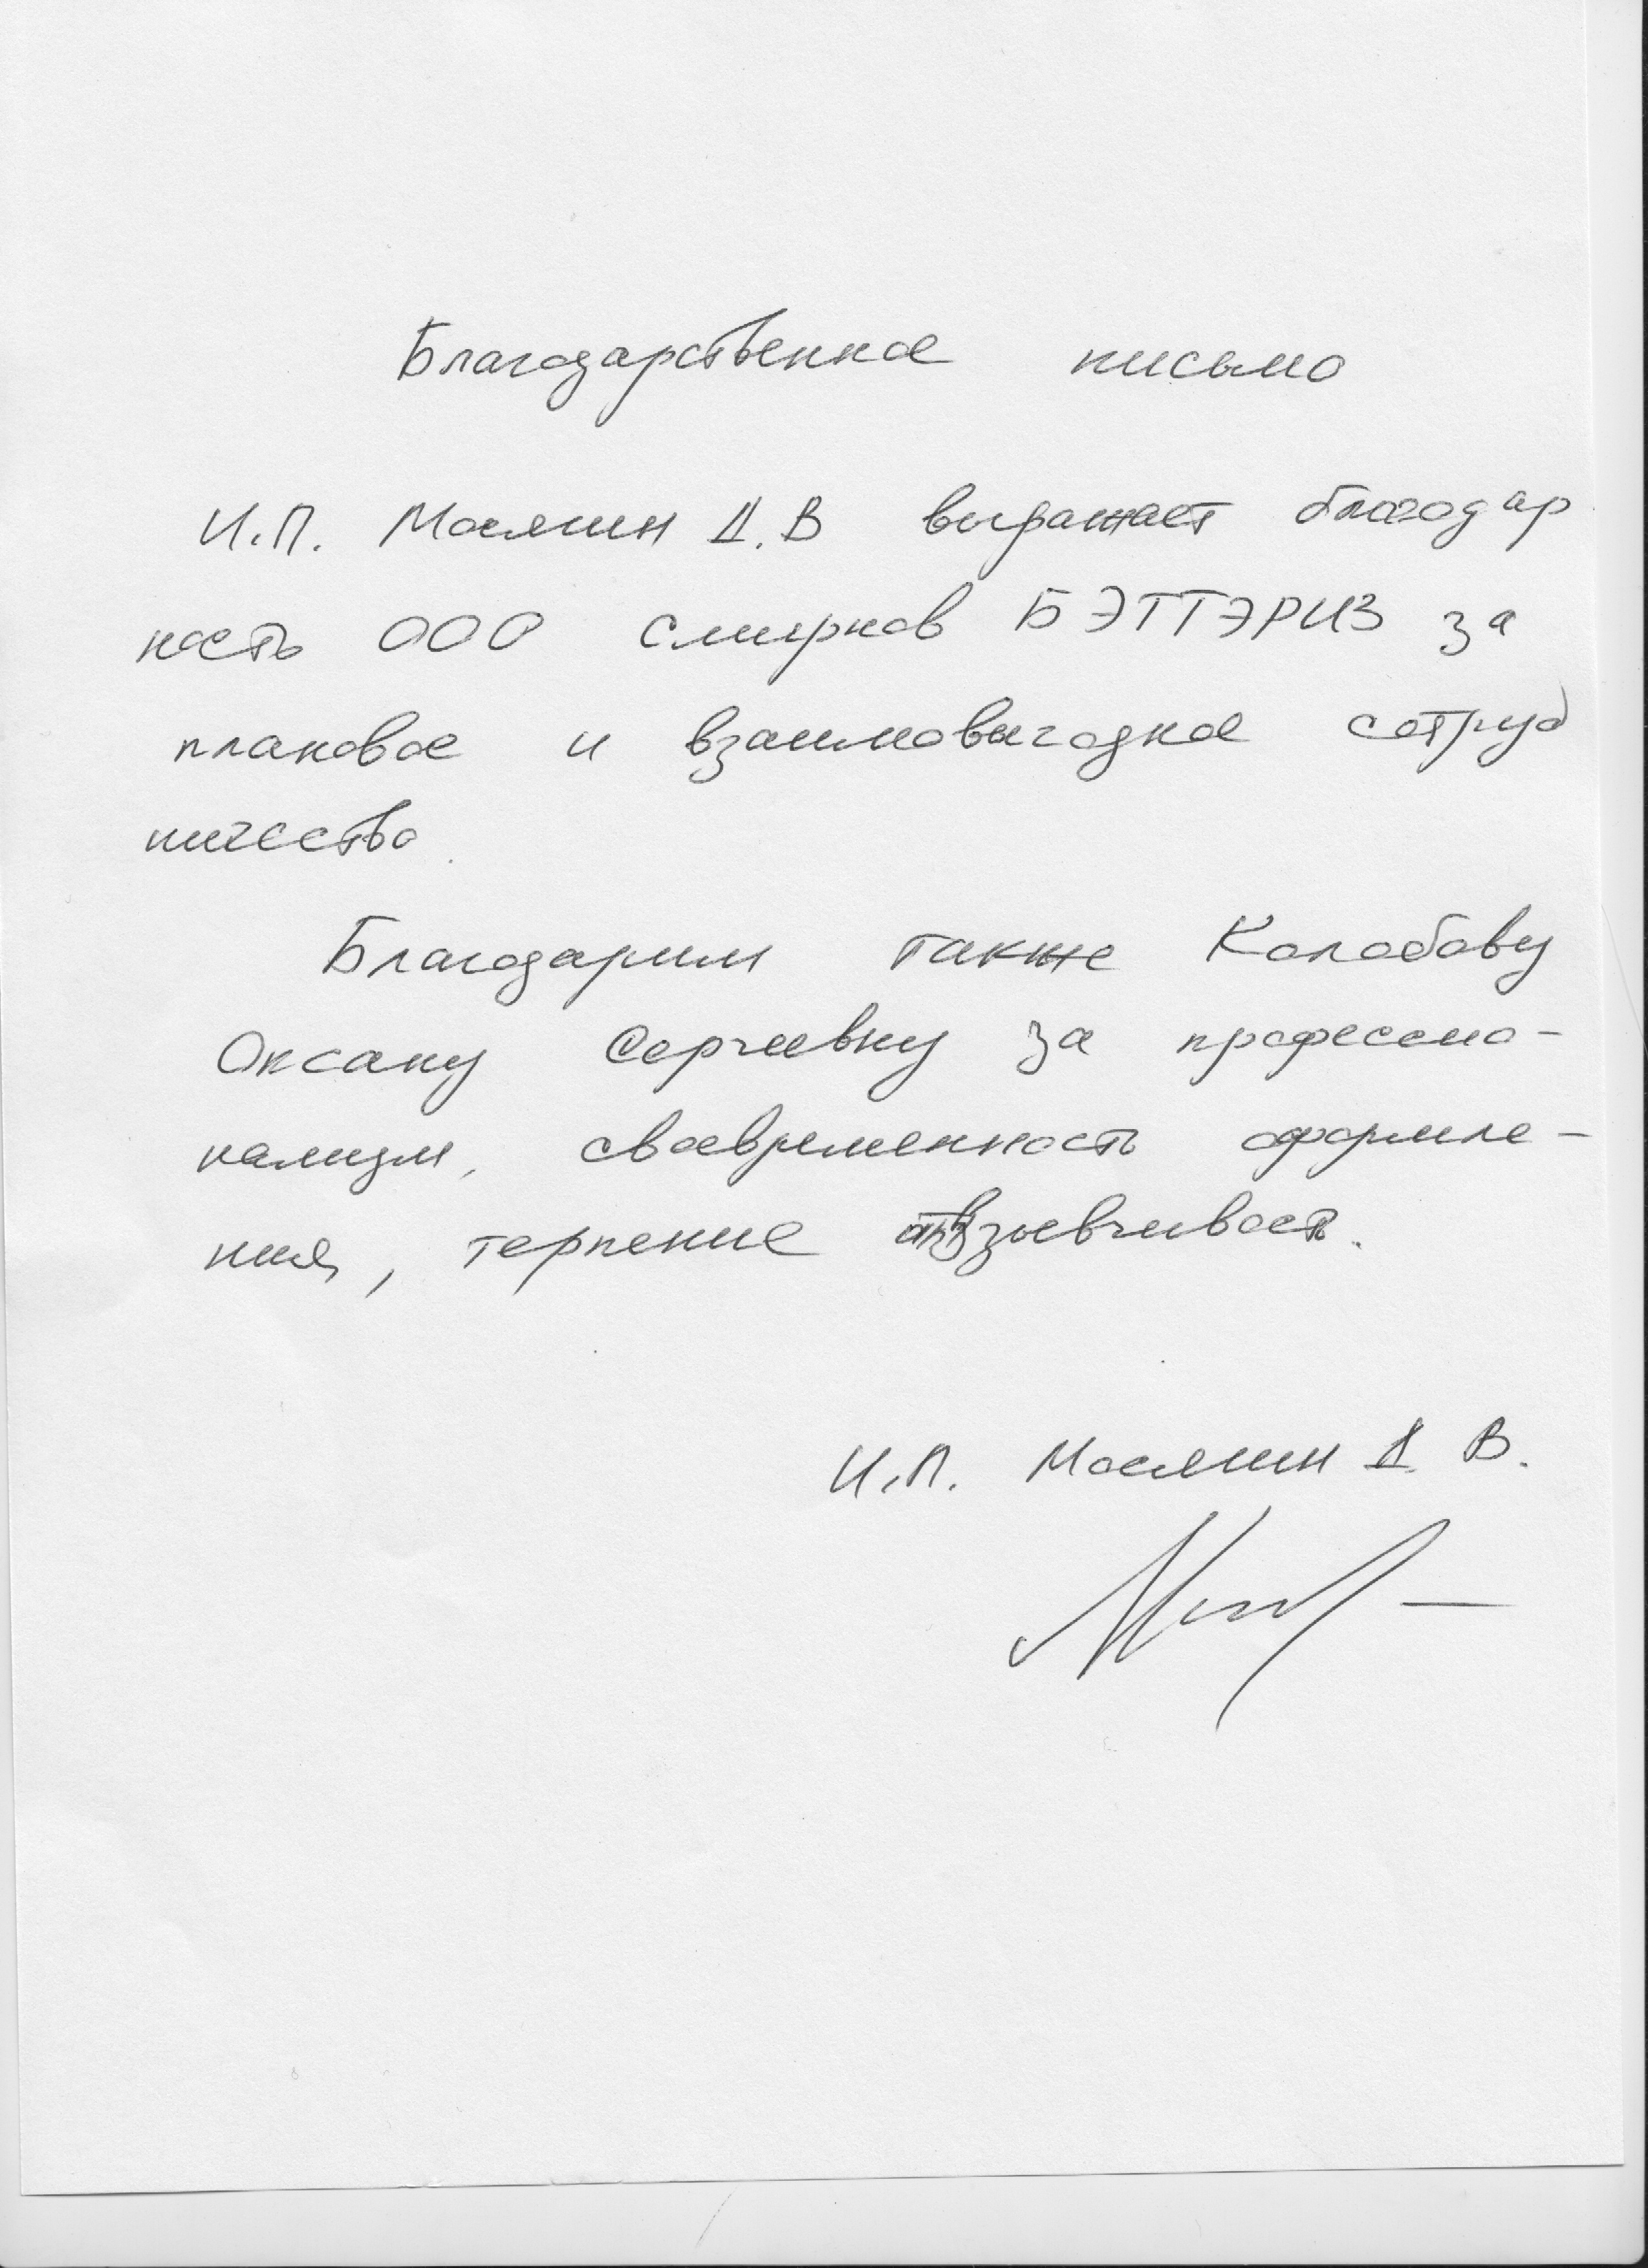 Благодарственное письмо
И.П. Маслин Д.В выражает благодар
ность ООО Смирнов БЭТТЭРИЗ за
плановое и взаимовыгодное сотруд
ничество.
Благодарим также Колобову
Оксану Сергеевну за професено-
нализм, своевременность оформле-
ния, терпение отзывчивость.
И.П. Маслин Д. В.